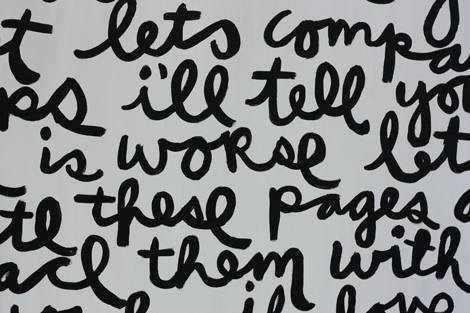 t lets compa
ps i'll tell yo
is worse let
te these pages a
acl them with